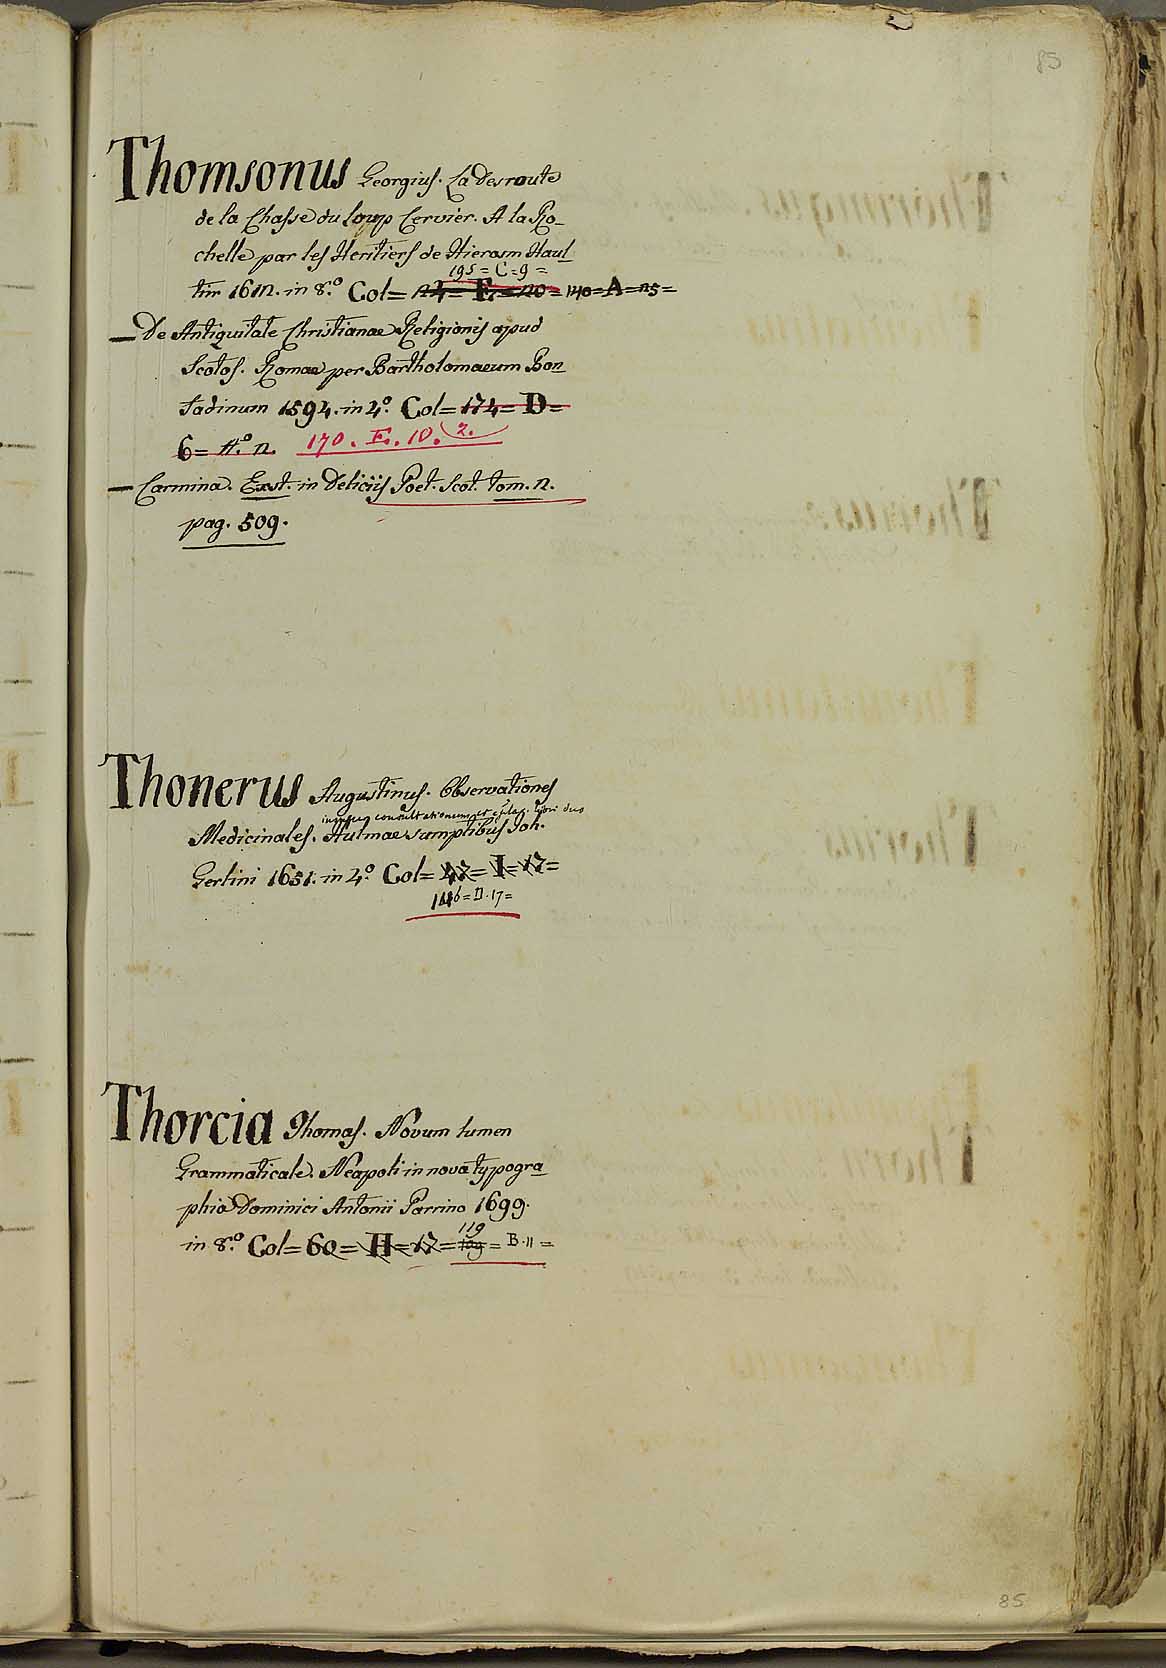 85
Thomsonus Georgius. La Desroute
de la Chasse du loup Cervier. A la Ro-
chelle par les Heritiers de Hierosm Haul
195 = C = 9 =
tin 1612. in 8.º Col= 140=A=25=
— De Antiquitate Christianae Religionis apud
Scotos. Romae per Bartholomaeum Bon
fadinum 1594. in 4.º Col= 174= D=
6= n.º 2. 170. E. 10. 2.
— Carmina. Exst. in Deliciis Poet. Scot. tom. 2.
pag. 509.
Thonerus Augustinus. Observationes
consultationum et
Medicinales. Hulmae sumptibus Joh.
Gerlini 1651. in 4.º Col= 47= I= 17=
146= D. 17=
Thorcia Thomas. Novum lumen
Grammaticale. Neapoli in nova typogra
phia Dominici Antonii Parrino 1699.
119
in 8.º Col= 60= H= 17= 109= B. 11=
85